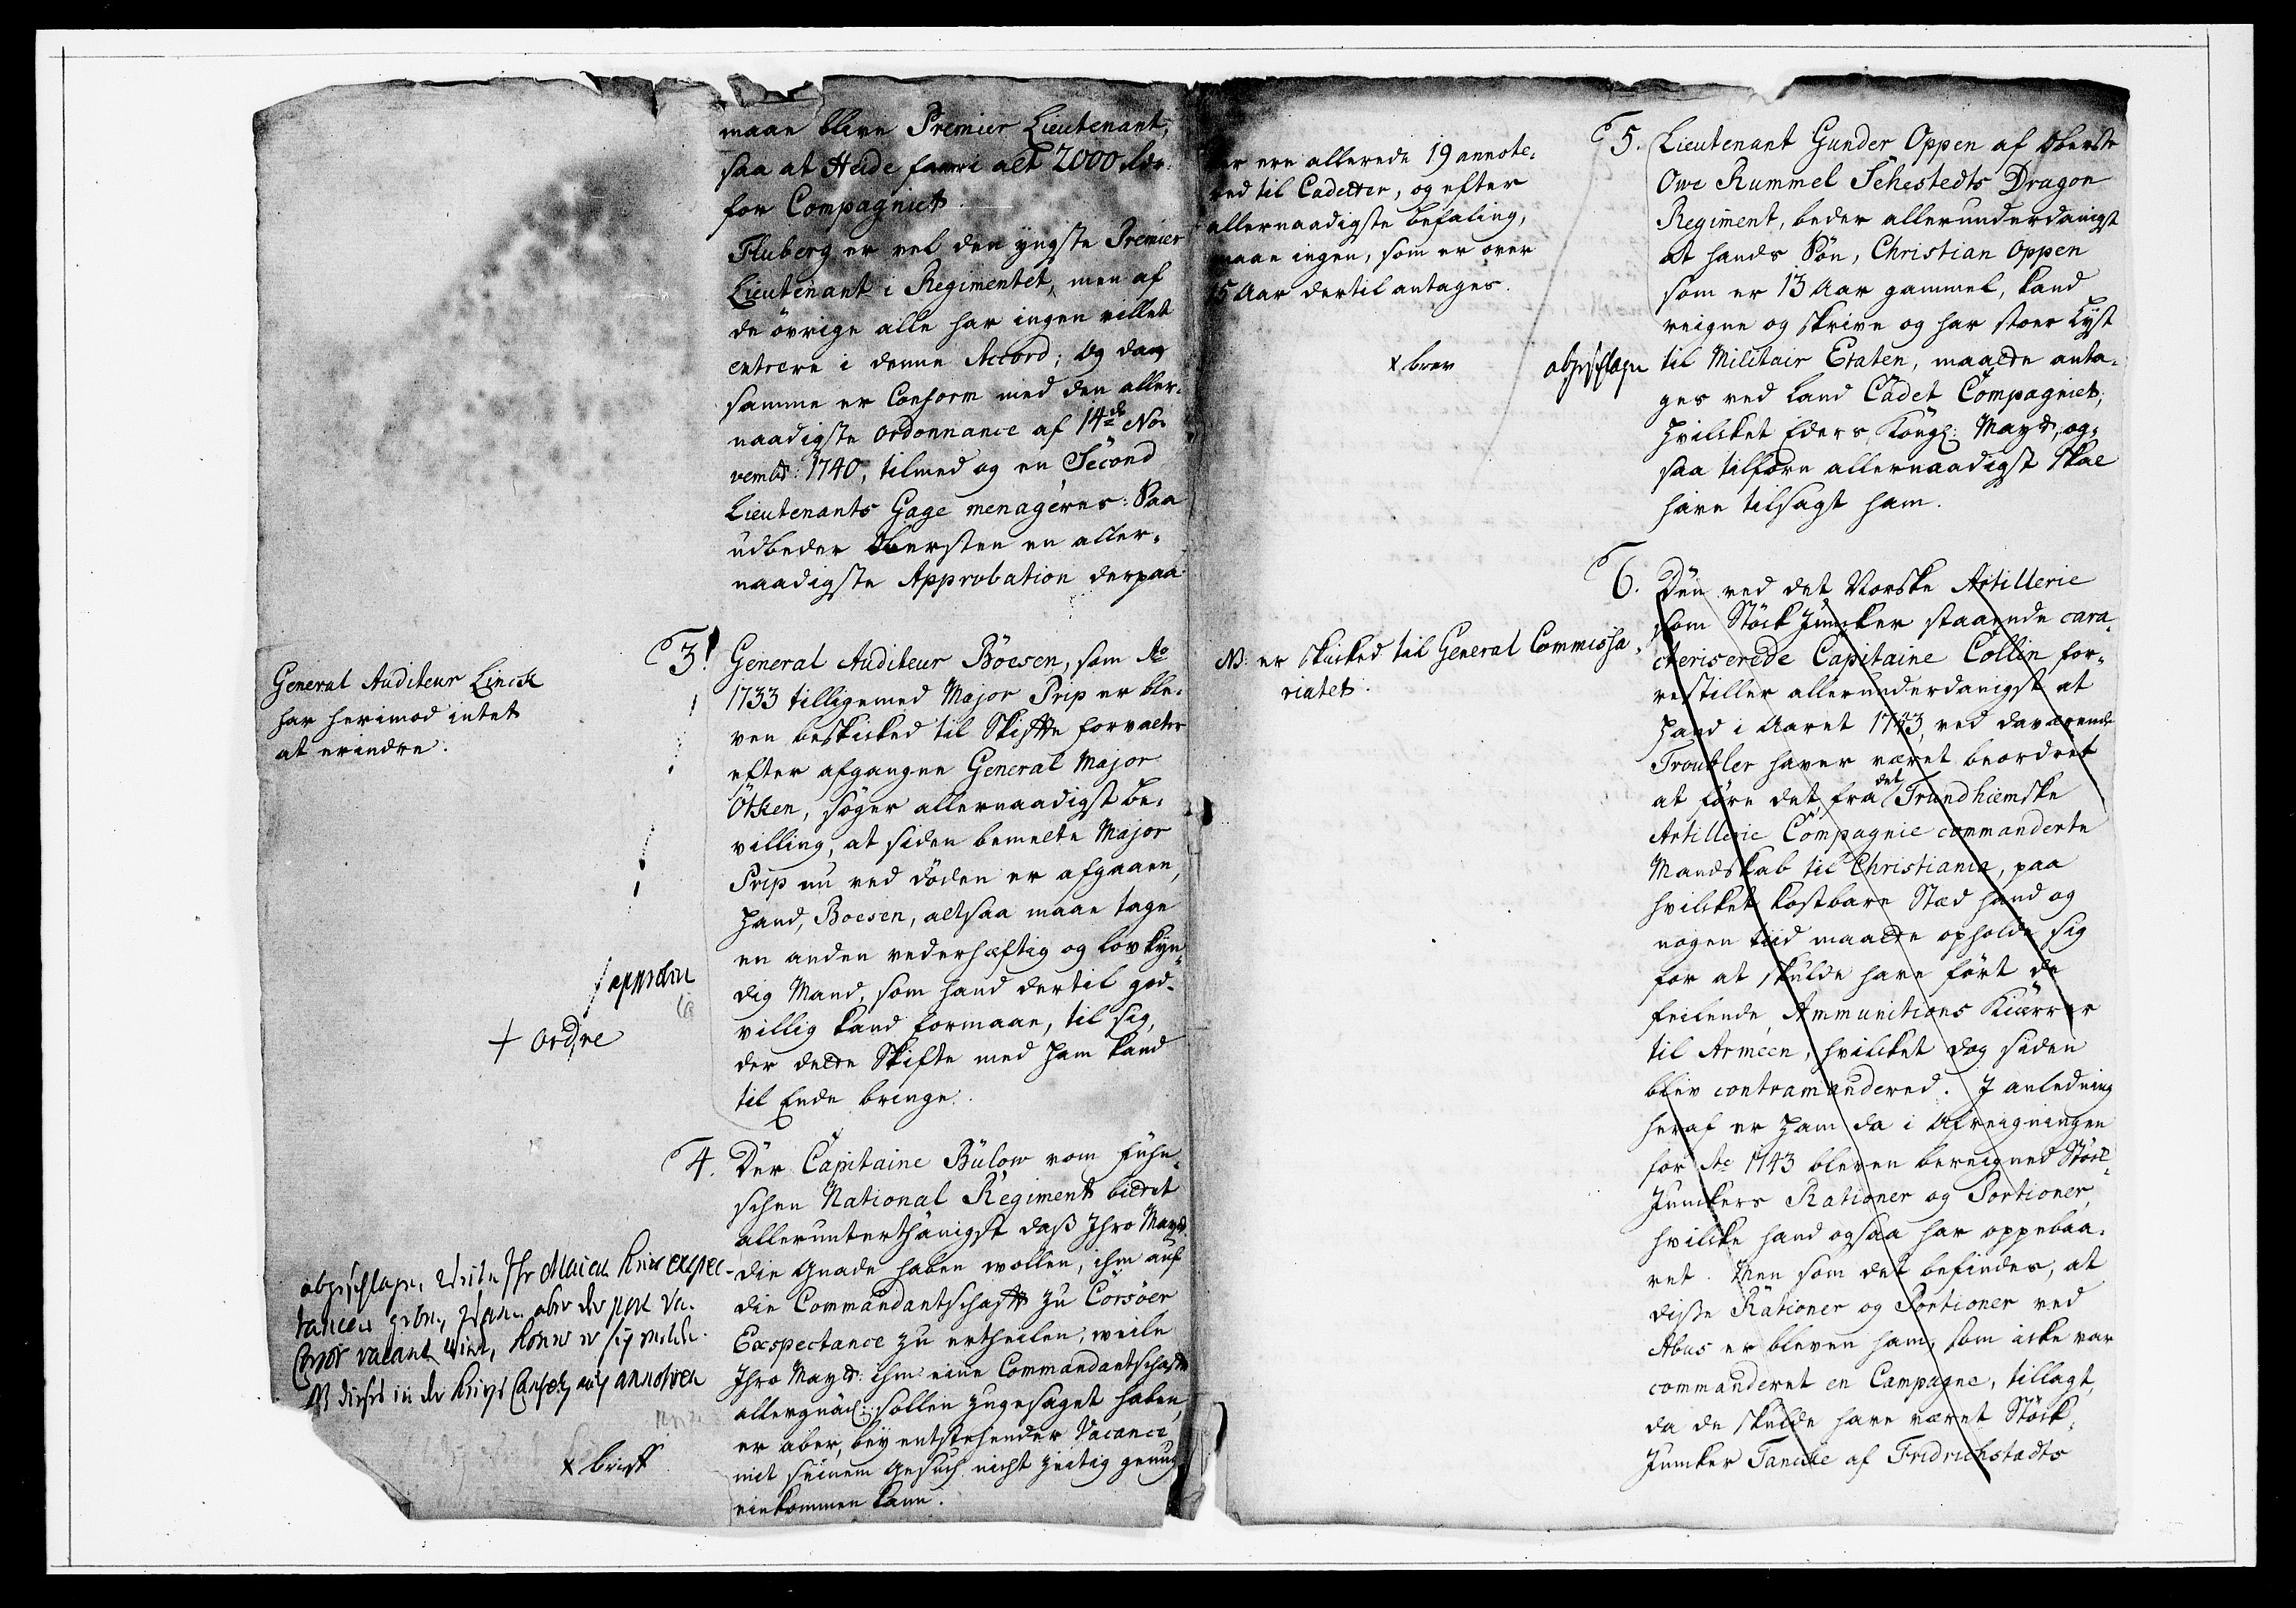 maae blive Premier Lieutenant,
saa at Heide faaer i alt 2000 rdr
for Compagniet.
Fluberg er vel den yngste Premier
Lieutenant i Regimentet, men af
de övrige alle har ingen villet
entrere i denne Accord; Og da
samme er Conform med den aller-
naadigste ordonnance af 14de No-
vembr: 1740, tilmed og en Second
Lieutenants Gage menageres: Saa
udbeder Obersten en aller-
naadigste Approbation derpaa
3. General Auditeur Böesen, som Ao
1733 tilligemed Major Prip er ble-
ven beskicked til Skifte forvalter
efter afgangne General Major
Ötken, söger allernaadigst be-
villing, at siden bemelte Major
Prip nu ved döden er afgaaen,
hand, Boesen, altsaa maae tage
en anden vederhæftig og lovkyn-
dig Mand, som hand dertil god-
villig kand formaae, til sig,
der dette Skifte med ham kand
til Ende bringe.
General Auditeur Linck
har herimod intet
at erindre.
approbere
+ ordre
4. Der Capitaine Bülow vom Fühn-
schen National Regiment bittet
allerunterthänigst daß Ihro Mayt.
die Gnade haben wollen, ihm auf
die Commandantschafft zu Corsöer
Exspectance zu ertheilen, weile
Ihro Mayt: ihm eine Commandantschafft
allergnäd: sollen zugesaget haben,
er aber, bey entstehender Vacance
mit seinem Gesuch nicht zeitig genug
einkommen kann.
abgeschlagen, weile Ihr Maiest. keine expec-
tancen geben, wan aber der post zu
Corsör vacant wird, könne er sich melden.
NB dieses in der Kriegs Cancely auch annotiren
x brieff
Her ere allerede 19 annote-
red til Cadetter, og efter
allernaadigste befaling,
maae ingen, som er over
15 Aar dertil antages.
x brev
abgeschlagen
5. Lieutenant Gunder Oppen af Oberste
Owe Rummel Sehestedts Dragon
Regiment, beder allerunderdanigst
at hands Sön, Christian Oppen
som er 13 Aar gammel, kand
reigne og skrive og har stoer Lyst
til Militair Etaten, maatte anta-
ges ved Land Cadet Compagniet,
hvilcket Eders Kongl: Mayt, og-
saa tilforn allernaadigst skal
have tilsagt ham.
NB. er skicked til General Commissa-
riatet.
6. Den ved det Norske Artillerie
som Stöck Juncker staaende cara-
cteriserede Capitaine Collin fo-
restiller allerunderdanigst at
hand i Aaret 1743, ved daværende
Troubler haver været beordret
at före det fra det Trundhiemske
Artillerie Compagnie commanderte
Mandskab til Christiania, paa
hvilcket kostbare Stæd hand og
nogen tiid maatte opholde sig
for at skulde have fört de
feilende Ammunitions Kiærrer
til Armeen, hvilcket dog siden
blev contramandered. I anledning
heraf er ham da i Afreigningen
for Ao 1743 bleven bereigned Stöck-
Junckers Rationer og Portioner,
hvilcke hand ogsaa har oppebaa-
ret. Men som det befindes, at
disse Rationer og Portioner ved
Abus er bleven ham, som icke var
commanderet en Campagne, tillagt,
da de skulde have været Stöck-
Juncker Tancke af Fridrichstadts